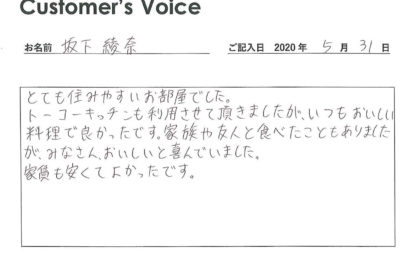 Customer's Voice
お名前 坂下 綾奈 ご記入日 2020年 5月 31日
とても住みやすいお部屋でした。
トーコーキッチンも利用させて頂きましたが、いつもおいしい
料理で良かったです。家族や友人と食べたこともありました
が、みなさん、おいしいと喜んでいました。
家賃も安くてよかったです。